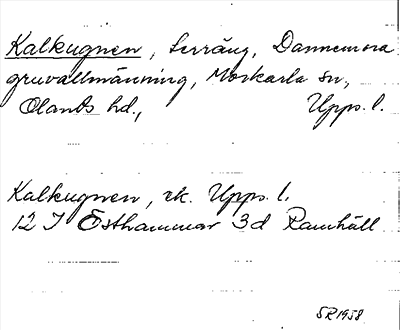 Kalkugnen, terräng, Dannemora
gruvallmänning, Morkarla sn,
Olands hd., Upps. l.
Kalkugnen, rk. Upps. l.
12 I Östhammar 3d Ramhäll
SR 1958